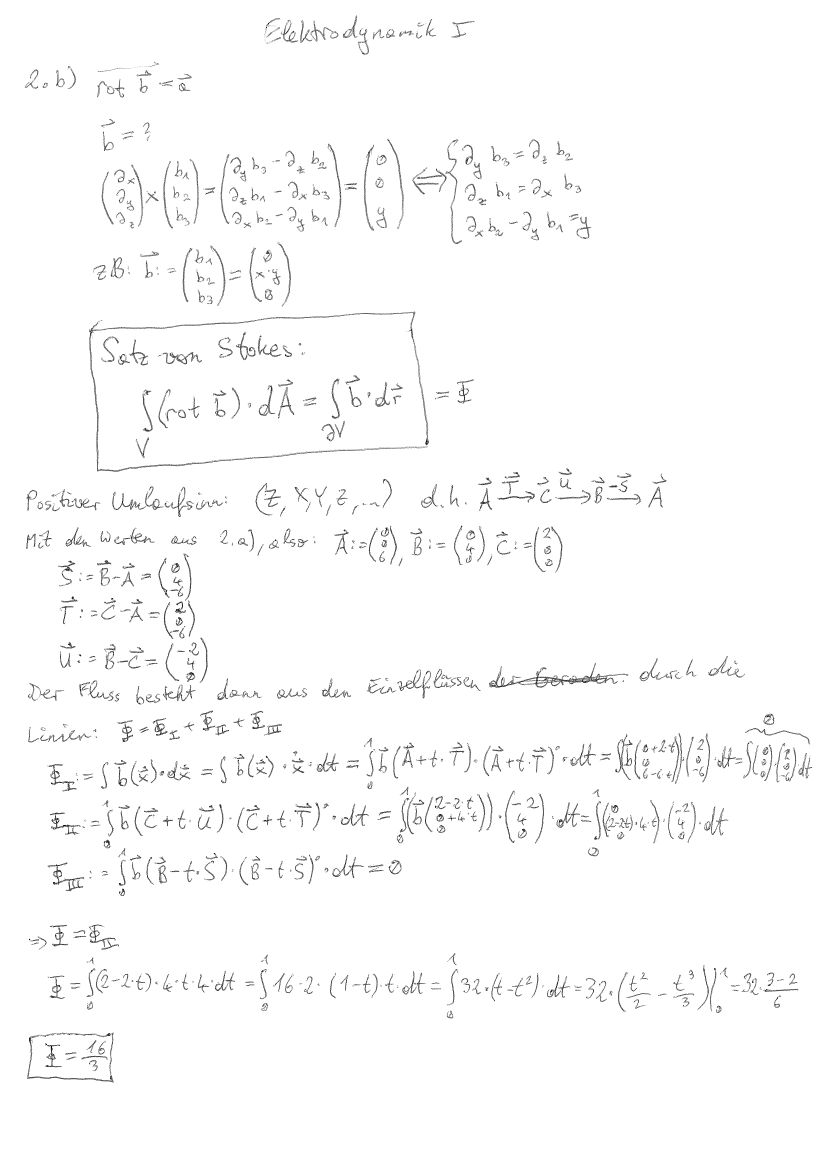 Elektrodynamik I
2.b) rot b⃗ = a⃗
b⃗ = ?
(∂x ∂y ∂z) × (b1 b2 b3) = (∂y b3 - ∂z b2, ∂z b1 - ∂x b3, ∂x b2 - ∂y b1) = (0 0 y) ⟺ { ∂y b3 = ∂z b2
∂z b1 = ∂x b3
∂x b2 - ∂y b1 = y
zB: b⃗ := (b1 b2 b3) = (0 x·y 0)
Satz von Stokes:
∫V (rot b⃗)·dA⃗ = ∫∂V b⃗·dr⃗ = Φ
Positiver Umlaufsinn: (Z, X, Y, Z, ...) d.h. A⃗ —T⃗→ C⃗ —U⃗→ B⃗ —-S⃗→ A⃗
Mit den Werten aus 2.a), also: A⃗ := (0 0 6), B⃗ := (0 4 0), C⃗ := (2 0 0)
S⃗ := B⃗ - A⃗ = (0 4 -6)
T⃗ := C⃗ - A⃗ = (2 0 -6)
U⃗ := B⃗ - C⃗ = (-2 4 0)
Der Fluss besteht dann aus den Einzelflüssen der Geraden: durch die
Linien: Φ = Φ_I + Φ_II + Φ_III
Φ_I := ∫ b⃗(x⃗)·dx⃗ = ∫ b⃗(x⃗)·ẋ⃗·dt = ∫₀¹ b⃗(A⃗ + t·T⃗)·(A⃗ + t·T⃗)˙·dt = ∫ b⃗(0+2·t 0 6-6·t)·(2 0 -6)·dt = ∫ (0 0 0)·(2 0 -6) dt 0
Φ_II := ∫₀¹ b⃗(C⃗ + t·U⃗)·(C⃗ + t·T⃗)˙·dt = ∫₀¹ (b⃗(2-2·t 0+4·t 0))·(-2 4 0)·dt = ∫₀¹ (0 (2-2t)·4·t 0)·(-2 4 0)·dt
Φ_III := ∫₀¹ b⃗(B⃗ - t·S⃗)·(B⃗ - t·S⃗)˙·dt = 0
⇒ Φ = Φ_II
Φ = ∫₀¹ (2-2·t)·4·t·4·dt = ∫₀¹ 16·2·(1-t)·t·dt = ∫₀¹ 32·(t-t²)·dt = 32·(t²/2 - t³/3)|₀¹ = 32·(3-2)/6
Φ = 16/3